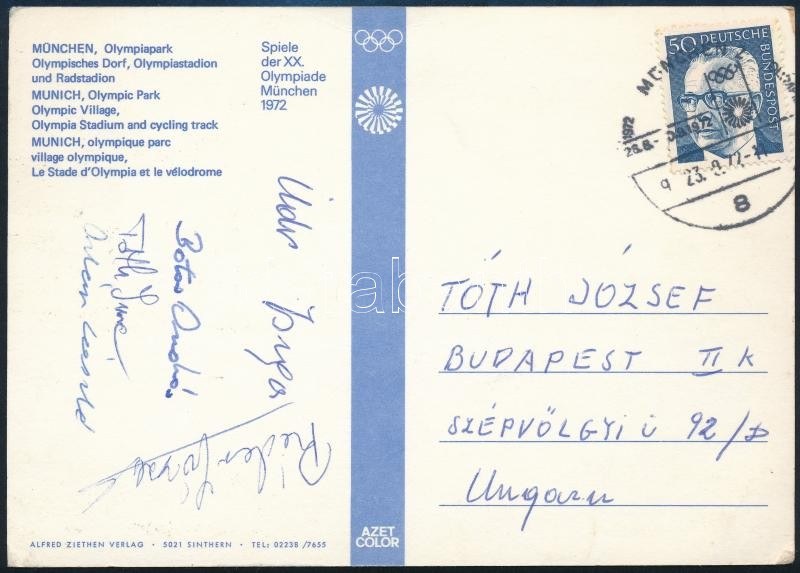 MÜNCHEN, Olympiapark
Olympisches Dorf, Olympiastadion
und Radstadion
MUNICH, Olympic Park
Olympic Village,
Olympia Stadium and cycling track
MUNICH, olympique parc
village olympique,
Le Stade d'Olympia et le vélodrome
Spiele
der XX.
Olympiade
München
1972
50 DEUTSCHE
BUNDESPOST
MÜNCHEN
8
Üdv
Botos András
Tóth Imre
TÓTH JÓZSEF
BUDAPEST II K
SZÉPVÖLGYI Ú 92/D
Ungarn
ALFRED ZIETHEN VERLAG • 5021 SINTHERN • TEL: 02238 /7655
AZET
COLOR